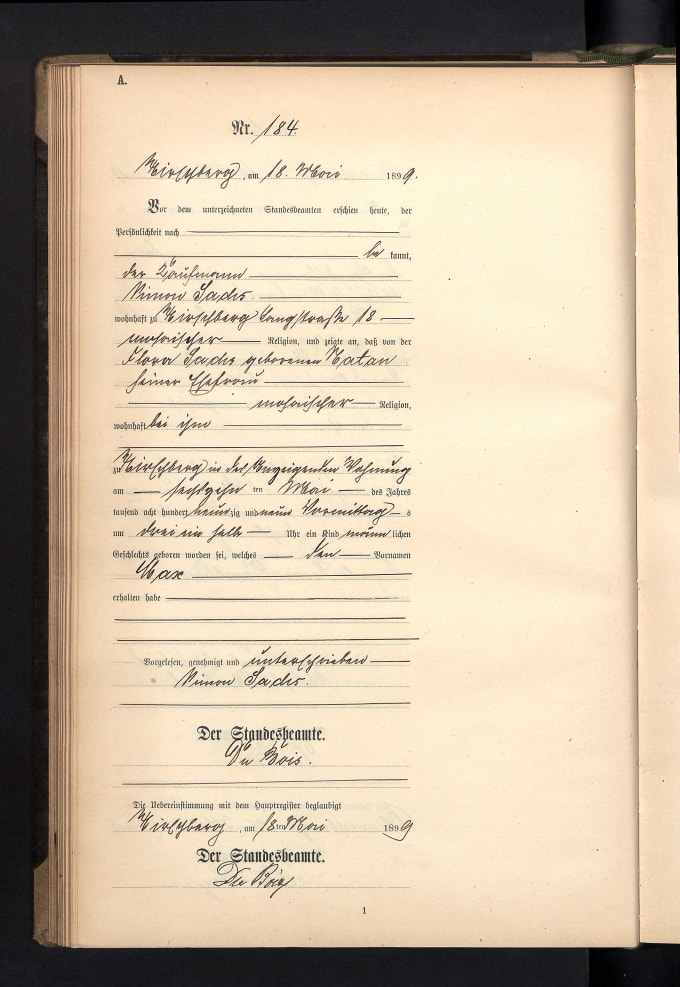 A.
Nr. 184.
Hirschberg, am 18. Mai 1899.
Vor dem unterzeichneten Standesbeamten erschien heute, der
Persönlichkeit nach
be kannt,
der Kaufmann
Simon Sachs
wohnhaft zu Hirschberg Langstraße 18
mosaischer Religion, und zeigte an, daß von der
Flora Sachs geborenen Natan
seiner Ehefrau
mosaischer Religion,
wohnhaft bei ihm
zu Hirschberg in des Anzeigenden Wohnung
am sechszehn ten Mai des Jahres
tausend acht hundert neunzig und neun Vormittag s
um drei ein halb Uhr ein Kind männ lichen
Geschlechts geboren worden sei, welches den Vornamen
Max
erhalten habe
Vorgelesen, genehmigt und unterschrieben
Simon Sachs.
Der Standesbeamte.
Du Bois.
Die Uebereinstimmung mit dem Hauptregister beglaubigt
Hirschberg, am 18 ten Mai 1899
Der Standesbeamte.
Du Bois
1